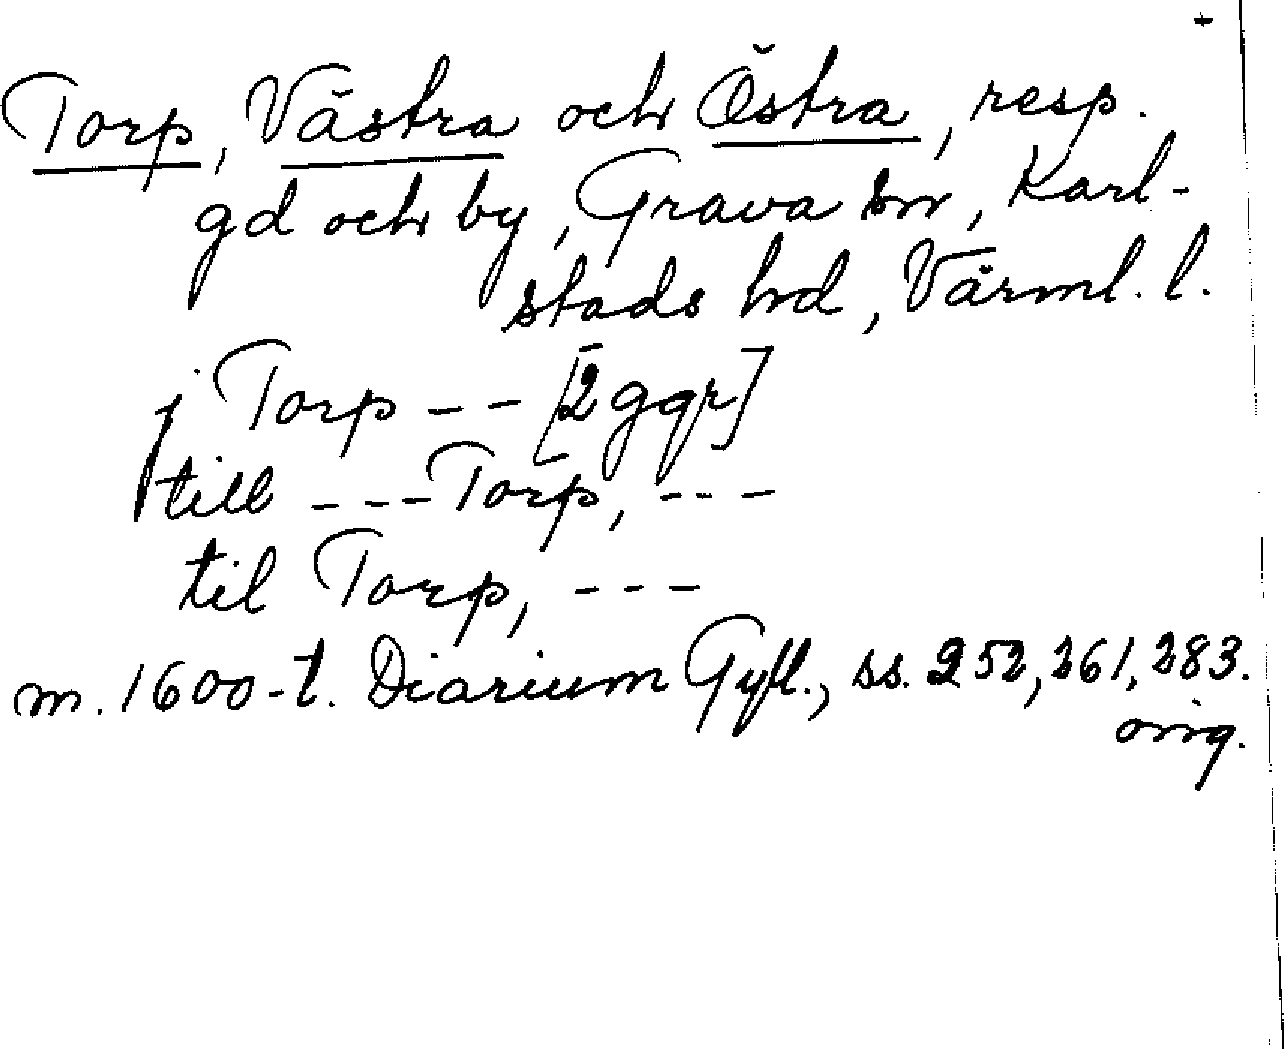 +
Torp, Västra och Östra, resp.
gd och by, Grava sn, Karl-
stads hd, Värml. l.
j Torp - - [2 ggr]
till - - - Torp, - - -
til Torp, - - -
m. 1600-t. Diarium Gyll., ss. 252, 261, 283.
orig.